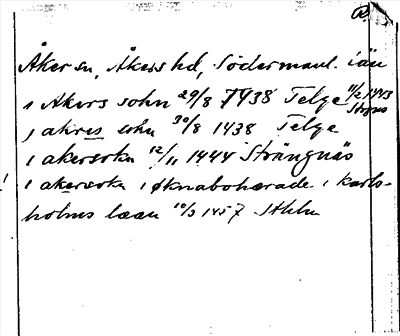 Åker sn, Åkers hd, Södermanl. län
i Akers sokn 29/8 1438 Telge 11/2 1443 Strgns
j akirs sokn 30/8 1438 Telge
i akersokn 12/11 1444 Strängnäs
! i akersokn i Øknaboharade i Karls-
holms læn 10/3 1457 Sthlm